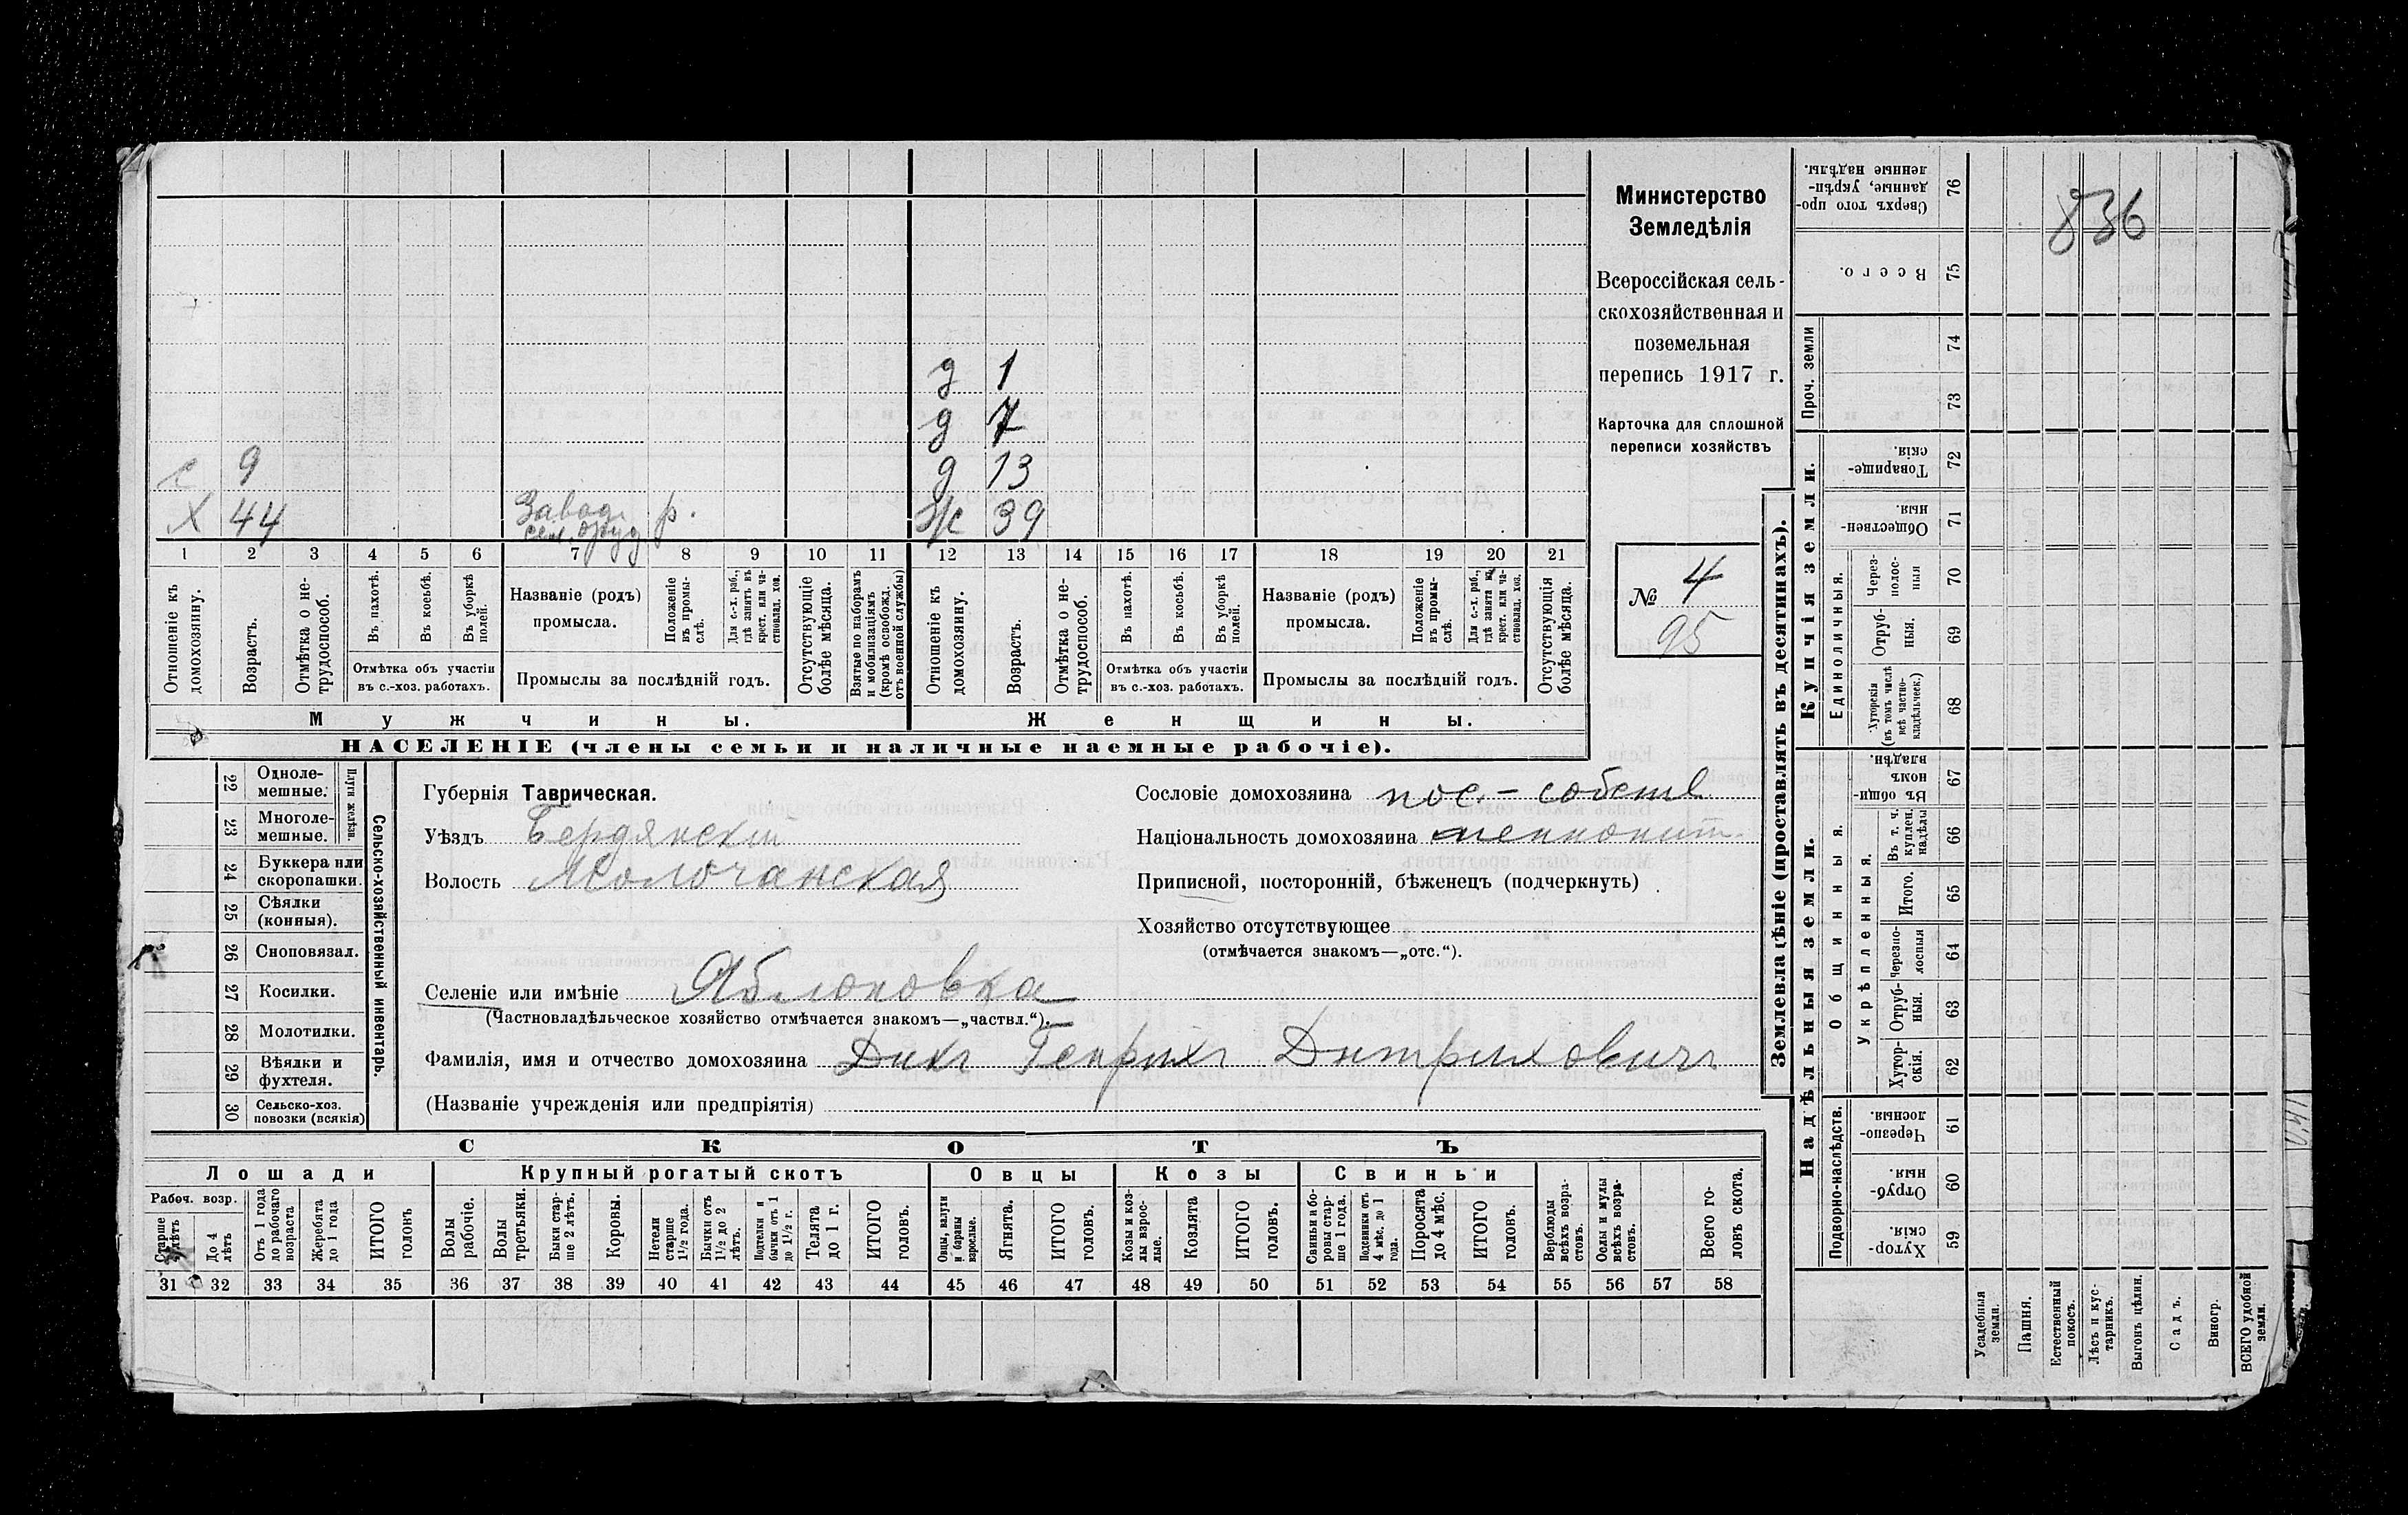 836
Министерство
Земледѣлія
Всероссійская сель-
скохозяйственная и
поземельная
перепись 1917 г.
Карточка для сплошной
переписи хозяйствъ
№ 4
95
д 1
д 7
с 9
д 13
х 44 Завод. р.
сел. оруд.
ж 39
1 2 3 4 5 6 7 8 9 10 11 12 13 14 15 16 17 18 19 20 21
Отношеніе къ домохозяину.
Возрастъ.
Отмѣтка о не-трудоспособ.
Въ пахотѣ.
Въ косьбѣ.
Въ уборкѣ полей.
Отмѣтка объ участіи
въ с.-хоз. работахъ.
Названіе (родъ)
промысла.
Положеніе въ промы-слѣ.
Для с.-х. раб., гдѣ занятъ въ крест. или ча-стновлад. хоз.
Промыслы за послѣдній годъ.
Отсутствующіе болѣе мѣсяца.
Взятые по наборамъ и мобилизаціямъ (кромѣ освобожд. отъ военной службы)
Отношеніе къ домохозяину.
Возрастъ.
Отмѣтка о не-трудоспособ.
Въ пахотѣ.
Въ косьбѣ.
Въ уборкѣ полей.
Отмѣтка объ участіи
въ с.-хоз. работахъ.
Названіе (родъ)
промысла.
Положеніе въ промы-слѣ.
Для с.-х. раб., гдѣ занята въ крест. или ча-стновлад. хоз.
Промыслы за послѣдній годъ.
Отсутствующія болѣе мѣсяца.
Мужчины.
Женщины.
НАСЕЛЕНІЕ (члены семьи и наличные наемные рабочіе).
22 Одноле-мешные.
23 Многоле-мешные.
Плуги желѣзн.
24 Буккера или скоропашки.
25 Сѣялки (конныя).
26 Сноповязал.
27 Косилки.
28 Молотилки.
29 Вѣялки и фухтеля.
30 Сельско-хоз. повозки (всякія)
Сельско-хозяйственный инвентарь.
Губернія Таврическая.
Уѣздъ Бердянскій
Волость Молочанская
Сословіе домохозяина пос.-собств.
Національность домохозяина меннонит.
Приписной, посторонній, бѣженецъ (подчеркнуть)
Хозяйство отсутствующее
(отмѣчается знакомъ—„отс.“).
Селеніе или имѣніе Яблоновка
(Частновладѣльческое хозяйство отмѣчается знакомъ—„частвл.“).
Фамилія, имя и отчество домохозяина Дикъ Генрихъ Дитриховичъ
(Названіе учрежденія или предпріятія)
СКОТЪ
Лошади
Крупный рогатый скотъ
Овцы
Козы
Свиньи
Рабоч. возр.
Старше 4 лѣтъ
До 4 лѣтъ
Отъ 1 года до рабочаго возраста
Жеребята до 1 года
ИТОГО головъ
Волы рабочіе.
Волы третьяки.
Быки стар-ше 2 лѣтъ.
Коровы.
Нетели старше 1½ года.
Бычки отъ 1½ до 2 лѣтъ.
Подтелки и бычки отъ 1 до 1½ г.
Телята до 1 г.
ИТОГО головъ.
Овцы, валухи и бараны взрослые.
Ягнята.
ИТОГО головъ.
Козы и коз-лы взрос-лые.
Козлята
ИТОГО головъ.
Свиньи и бо-ровы стар-ше 1 года.
Подсвинки отъ 4 мѣс. до 1 года.
Поросята до 4 мѣс.
ИТОГО головъ.
Верблюды всѣхъ возра-стовъ.
Ослы и мулы всѣхъ возра-стовъ.
Всего го-ловъ скота.
31 32 33 34 35 36 37 38 39 40 41 42 43 44 45 46 47 48 49 50 51 52 53 54 55 56 57 58
Землевладѣніе (проставлять въ десятинахъ).
Надѣльныя земли.
Купчія земли.
Проч. земли
Подворно-наслѣдств.
Общинныя.
Укрѣпленныя.
Единоличныя.
Сверхъ того про-данные, укрѣп-ленные надѣлы. 76
Всего. 75
74
73
Товарище-скія. 72
Обществен-ныя. 71
Через-полос-ныя 70
Отруб-ныя. 69
Хуторскія (въ томъ числѣ всѣ частно-владѣльческ.) 68
Въ общин-номъ владѣн. 67
Въ т. ч. куплен. надѣлы 66
Итого. 65
Черезпо-лосныя 64
Отруб-ныя. 63
Хутор-скія. 62
Черезпо-лосныя. 61
Отруб-ныя. 60
Хутор-скія. 59
Усадебныя земли.
Пашня.
Естественный покосъ.
Лѣсъ и кус-тарникъ.
Выгонъ цѣлин.
Садъ.
Виногр.
ВСЕГО удобной земли.